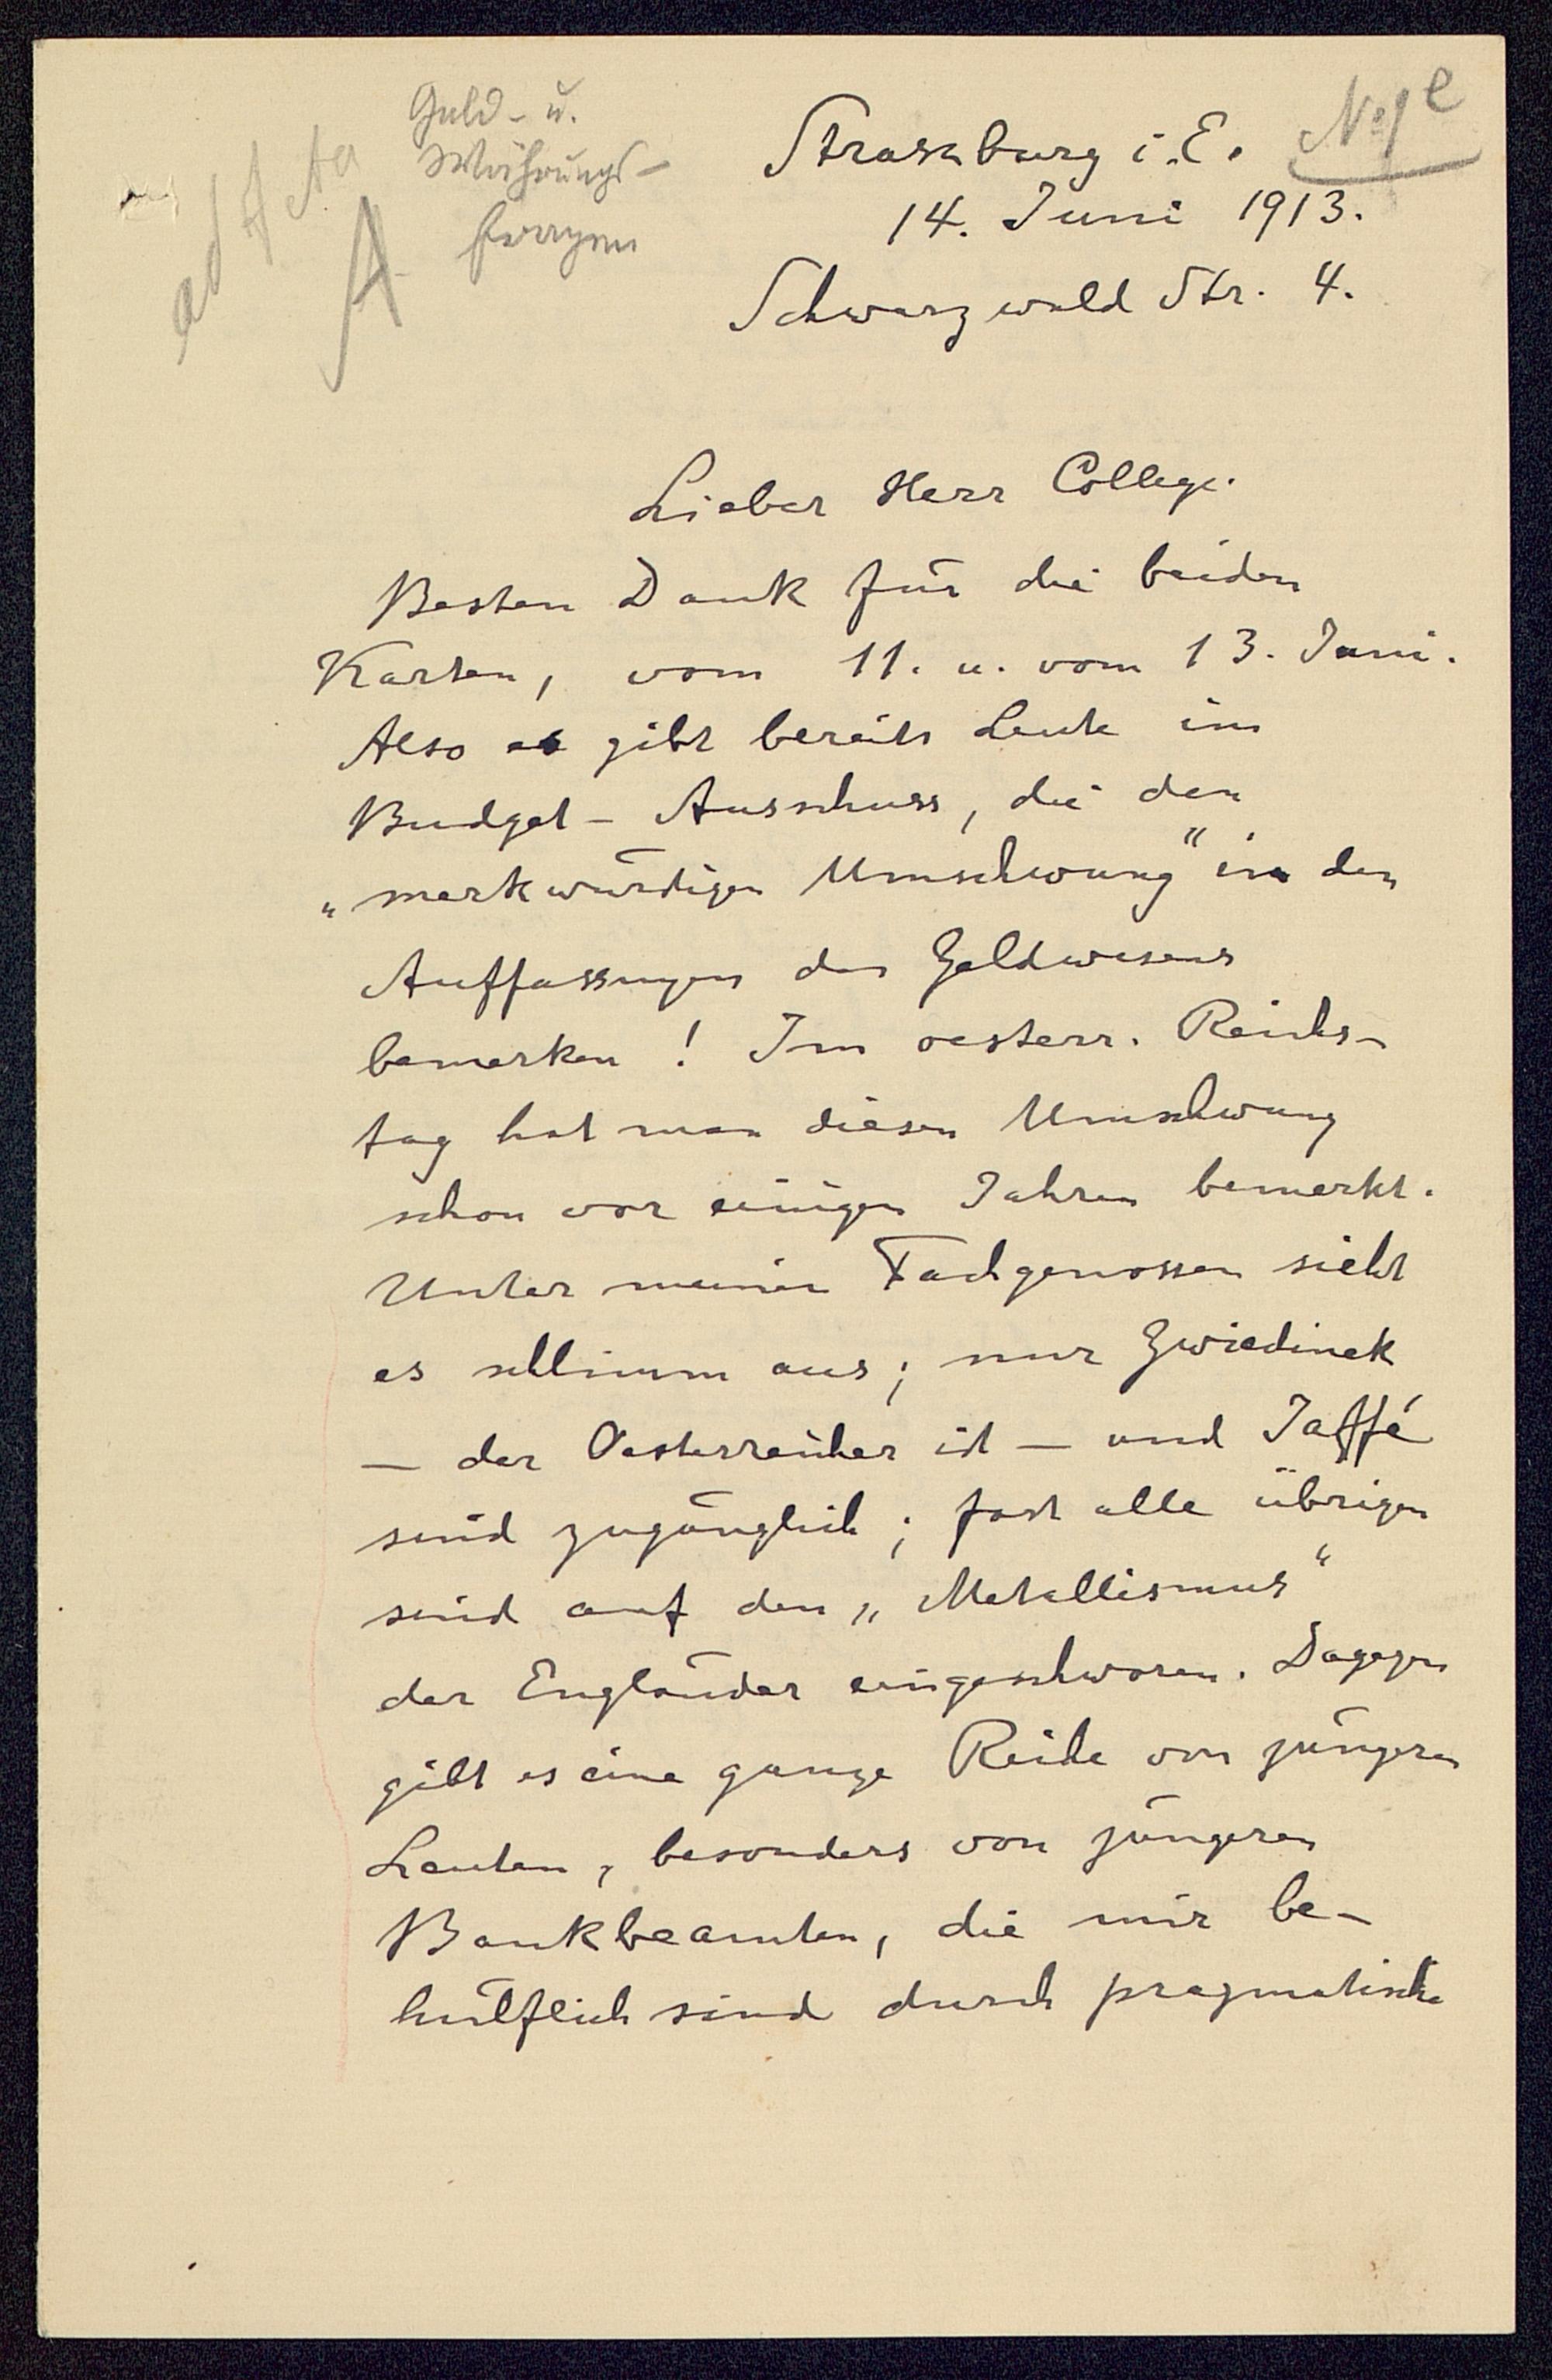 ad Acta
A
Geld- u.
Währungs-
fragen
No 1e
Strassburg i. E.
14. Juni 1913.
Schwarzwald Str. 4.
Lieber Herr College.
Besten Dank für die beiden
Karten, vom 11. u. vom 13. Juni.
Also es gibt bereits Leute im
Budget- Ausschuss, die den
„merkwürdigen Umschwung" in den
Auffassungen des Geldwesens
bemerken! Im oesterr. Reichs-
tag hat man diesen Umschwung
schon vor einigen Jahren bemerkt.
Unter meinen Fachgenossen sieht
es schlimm aus; nur Zwiedinek
- der Oesterreicher ist - und Jaffé
sind zugänglich; fast alle übrigen
sind auf den „Metallismus"
der Engländer eingeschworen. Dagegen
gibt es eine ganze Reihe von jüngeren
Leuten, besonders von jüngeren
Bankbeamten, die mir be-
hülflich sind durch pragmatische